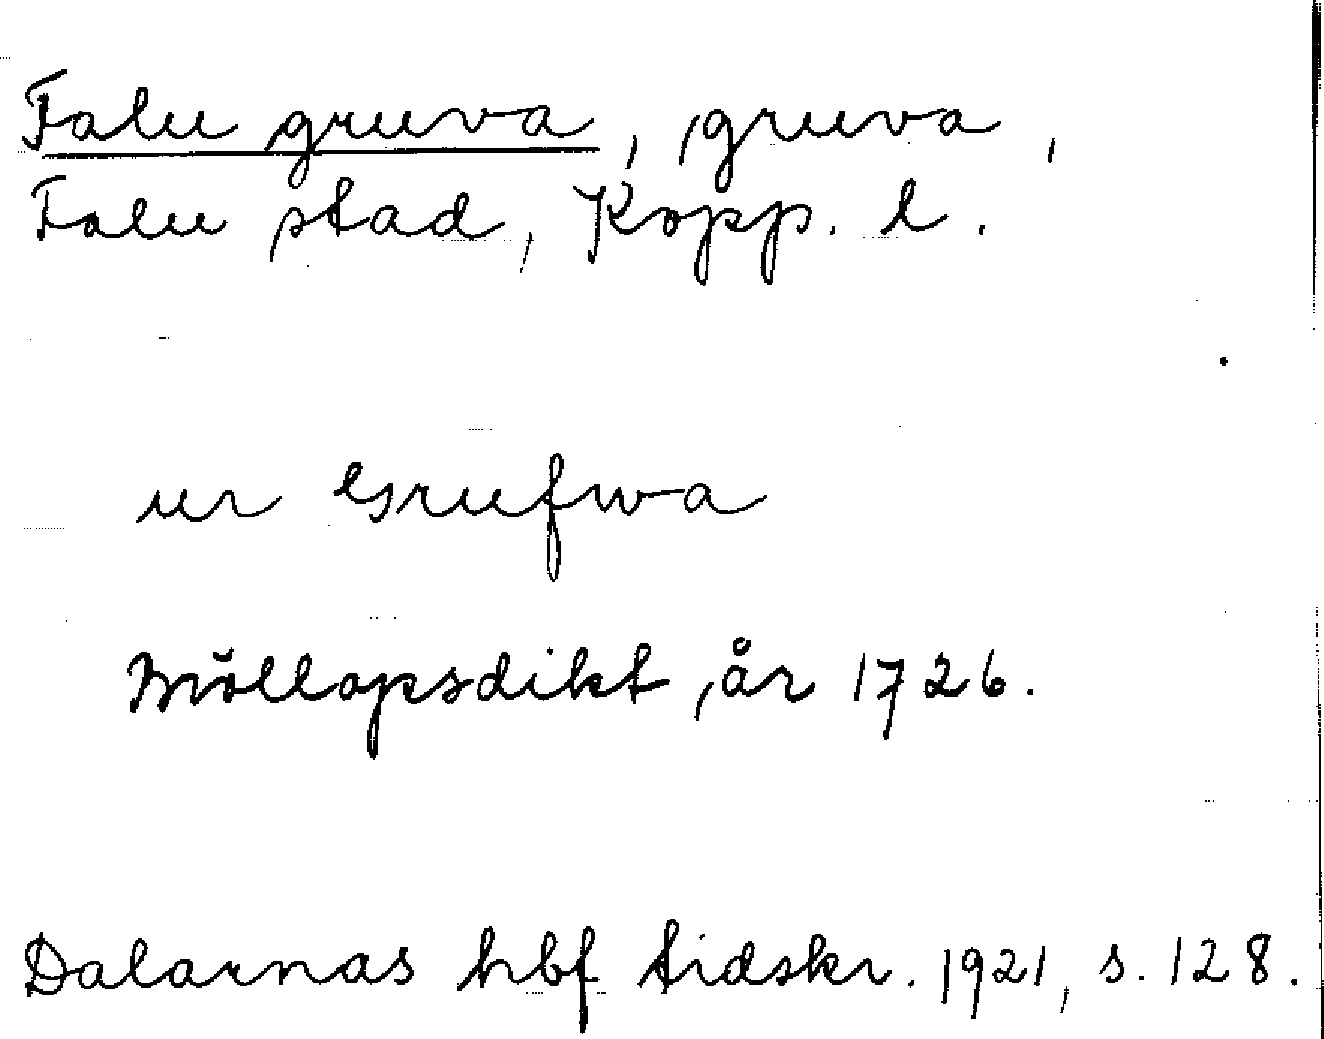 Falu gruva, gruva,
Falu stad, Kopp. l.
ur Grufwa
Bröllopsdikt, år 1726.
Dalarnas hbf tidskr. 1921, s. 128.